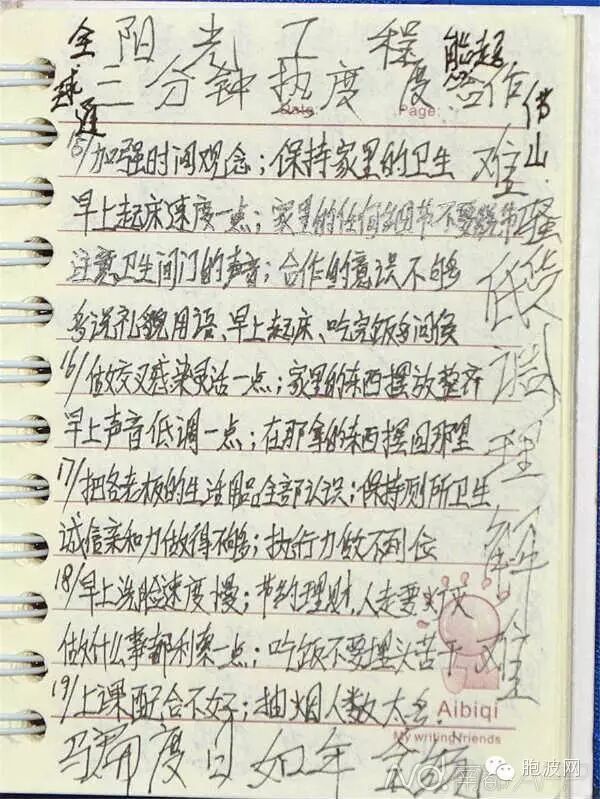 全阳光工程 能超
三分钟热度 度合作
越通
Date Page:
佛山
15/加强时间观念；保持家里的卫生
早上起床速度一点；家里的任何细节不要
注意卫生间门的声音；合作的意误不够
多说礼貌用语、早上起床、吃完饭多问侯
16/做交叉感染灵活一点；家里的东西摆放整齐
早上声音低调一点；在那拿的东西摆回那里
17/把各老板的生活用品全部认误；保持厕所卫生
诚信亲和力做得不够；执行力做不到位
18/早上洗脸速度慢；节约理财，人走要灯灭
做什么事都利索一点；吃饭不要埋头苦干
19/上课配合不好；抽烟人数太多
难 低调 理解 难
骚货
度日如年
Aibiqi
My writing friends
南都
胞波网